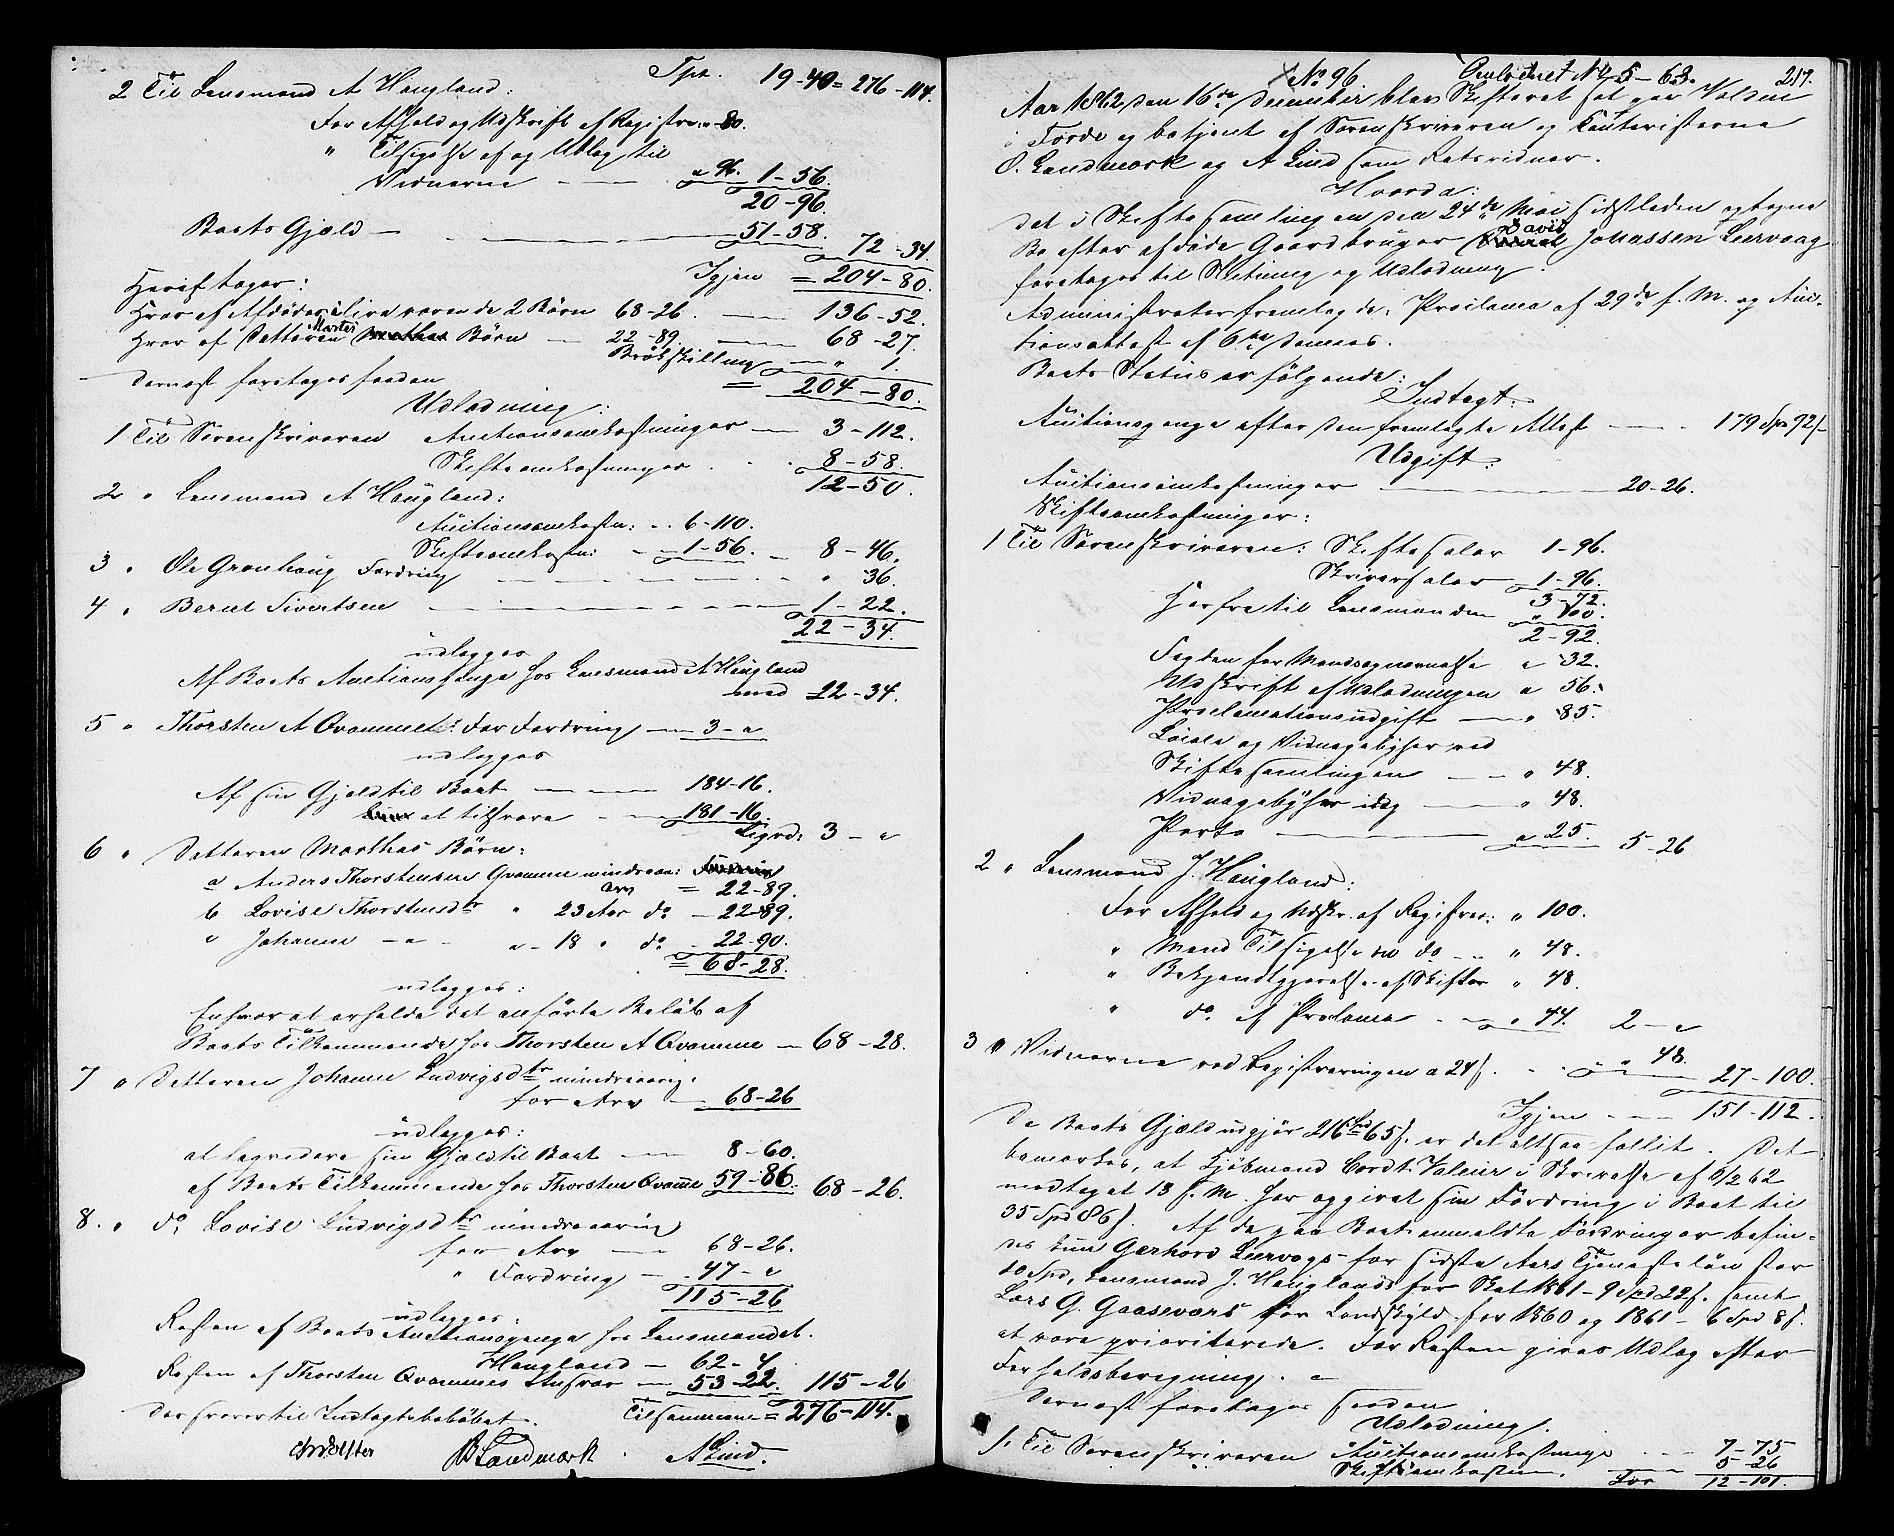 Tpt. 19-40 = 276-114.
2 Til Lensmand A Haugland:
For Afhold og Udskrift af Registr: " 80.
" Tilsigelse af og Udlæg til
Vidnerne — " 96. 1-56.
20-96.
Boets Gjæld — 51-58. 72-34.
Igjen = 204-80.
Heraf tager:
Hver af Afdødes ilive værende 2 Børn 68-26. — 136-52.
Hver af Datteren Marthes Børn — 22-89. — 68-27.
Brøkskilling — " 1.
= 204-80.
Dernæst foretages saadan
Udlodning:
1 Til Sorenskriveren Auctionsomkostninger — 3-112.
Skifteomkostninger . . 8-58.
12-50.
2 " Lensmand A Haugland:
Auctionsomkostn: . . 6-110.
Skifteomkostn: — 1-56. — 8-46.
3 " Ole Grønhaug Fordring — " 36.
4 " Bernt Sivertsen — 1-22.
22-34.
udlægges
Af Boets Auctionspenge hos Lensmand A Haugland
med 22-34.
5 " Thorsten A Qvamme: For Fordring — 3 - "
udlægges
Af sin Gjæld til Boet — 184-16.
at tilsvare — 181-16.
Liqvd: 3 - "
6 " Datteren Marthas Børn:
a Anders Thorstensen Qvamme mindreaar:
Arv = 22-89.
b Lovise Thorstensdtr " 23 Aar do — 22-89.
c Johanne — " — " - 18 " do - 22-90.
= 68-28.
udlægges:
Enhver at erholde det anførte Beløb af
Boets Tilkommende hos Thorsten A Qvamme — 68-28.
7 " Datteren Johanne Ludvigsdtr mindreaarig
for Arv — 68-26
udlægges:
at liqvidere sin Gjæld til Boet — 8-60.
af Boets Tilkommende hos Thorsten Qvamme 59-86. 68-26.
8. " do Lovise Ludvigsdtr mindreaarig
for Arv — 68-26.
" Fordring — 47 - "
115-26
udlægges:
Resten af Boets Auctionspenge hos Lensmanden
Haugland — 62-4.
Resten af Thorsten Qvammes Tilsvar — 53-22. 115-26
Der svarer til Indtægtsbeløbet. Tilsammen = 276-114.
B Landmark . A Lind.
No 96 Omlodnet No 5-63. 217.
Aar 1862 den 16de December blev Skifteret sat paa Volden
i Førde og betjent af Sorenskriveren og Cantoristerne
O. Landmark og A Lind som Retsvidner.
Hvorda:
det i Skiftesamlingen den 24de Mai sidstleden optagne
Bo efter afdøde Gaardbruger David Johassen Leervaag
foretoges til Slutning og Udlodning.
Administrator fremlagde: Proclama af 29de f. M. og Auc-
tionsattest af 6te dennes.
Boets Status er følgende:
Indtægt:
Auctionspenge efter den fremlagte Attest — 179 Spd 92 s
Udgift:
Auctionsomkostninger — 20-26.
Skifteomkostninger:
1 Til Sorenskriveren: Skiftesalær 1-96.
Skriversalær — 1-96.
3-72.
Herfra til Lensmanden " 100.
2-92.
Fogden for Mandsopnævnelse " 32.
Udskrift af Udlodningen " 56.
Proclamationsudgift — " 85.
Locale og Vidnegebyhr ved
Skiftesamlingen — " 48.
Vidnegebyhr idag — " 48.
Porto — " 25. 5-26
2 " Lensmand J. Haugland:
For Afhold og Udskr. af Registr: " 100.
" Mand Tilsigelse ved do — " 48.
" Bekjendtgjørelse af Skiftet " 48.
" do af Proclama — " 44. 2 - "
3 " Vidnerne ved Registreringen a 24 s. — " 48.
27-100.
Igjen — 151-112.
Da Boets Gjæld udgjør 216 Spd 65 s. er det altsaa fallit. Det
bemærkes, at Kjøbmand Cordt Valeur i Skrivelse af 6/2 62
modtaget 18 f. M. har opgivet sin Fordring i Boet til
35 Spd 86 s. Af de paa Boet anmeldte Fordringer befin-
des kun Gerhard Leervags for sidste Aars Tjenesteløn stor
10 Spd, Lensmand J. Hauglands for Skat 1861 - 9 Spd 22 s. samt
Lars G. Gaaseværs for Landskyld for 1860 og 1861 - 6 Spd 8 s.
at være prioriterede. For Resten gives Udlæg efter
Forholdsberegning. —
Dernæst foretages saadan
Udlodning.
1. Til Sorenskriveren Auctionsomkostninge — 7-75
Skifteomkostn. — 5-26
12-101.